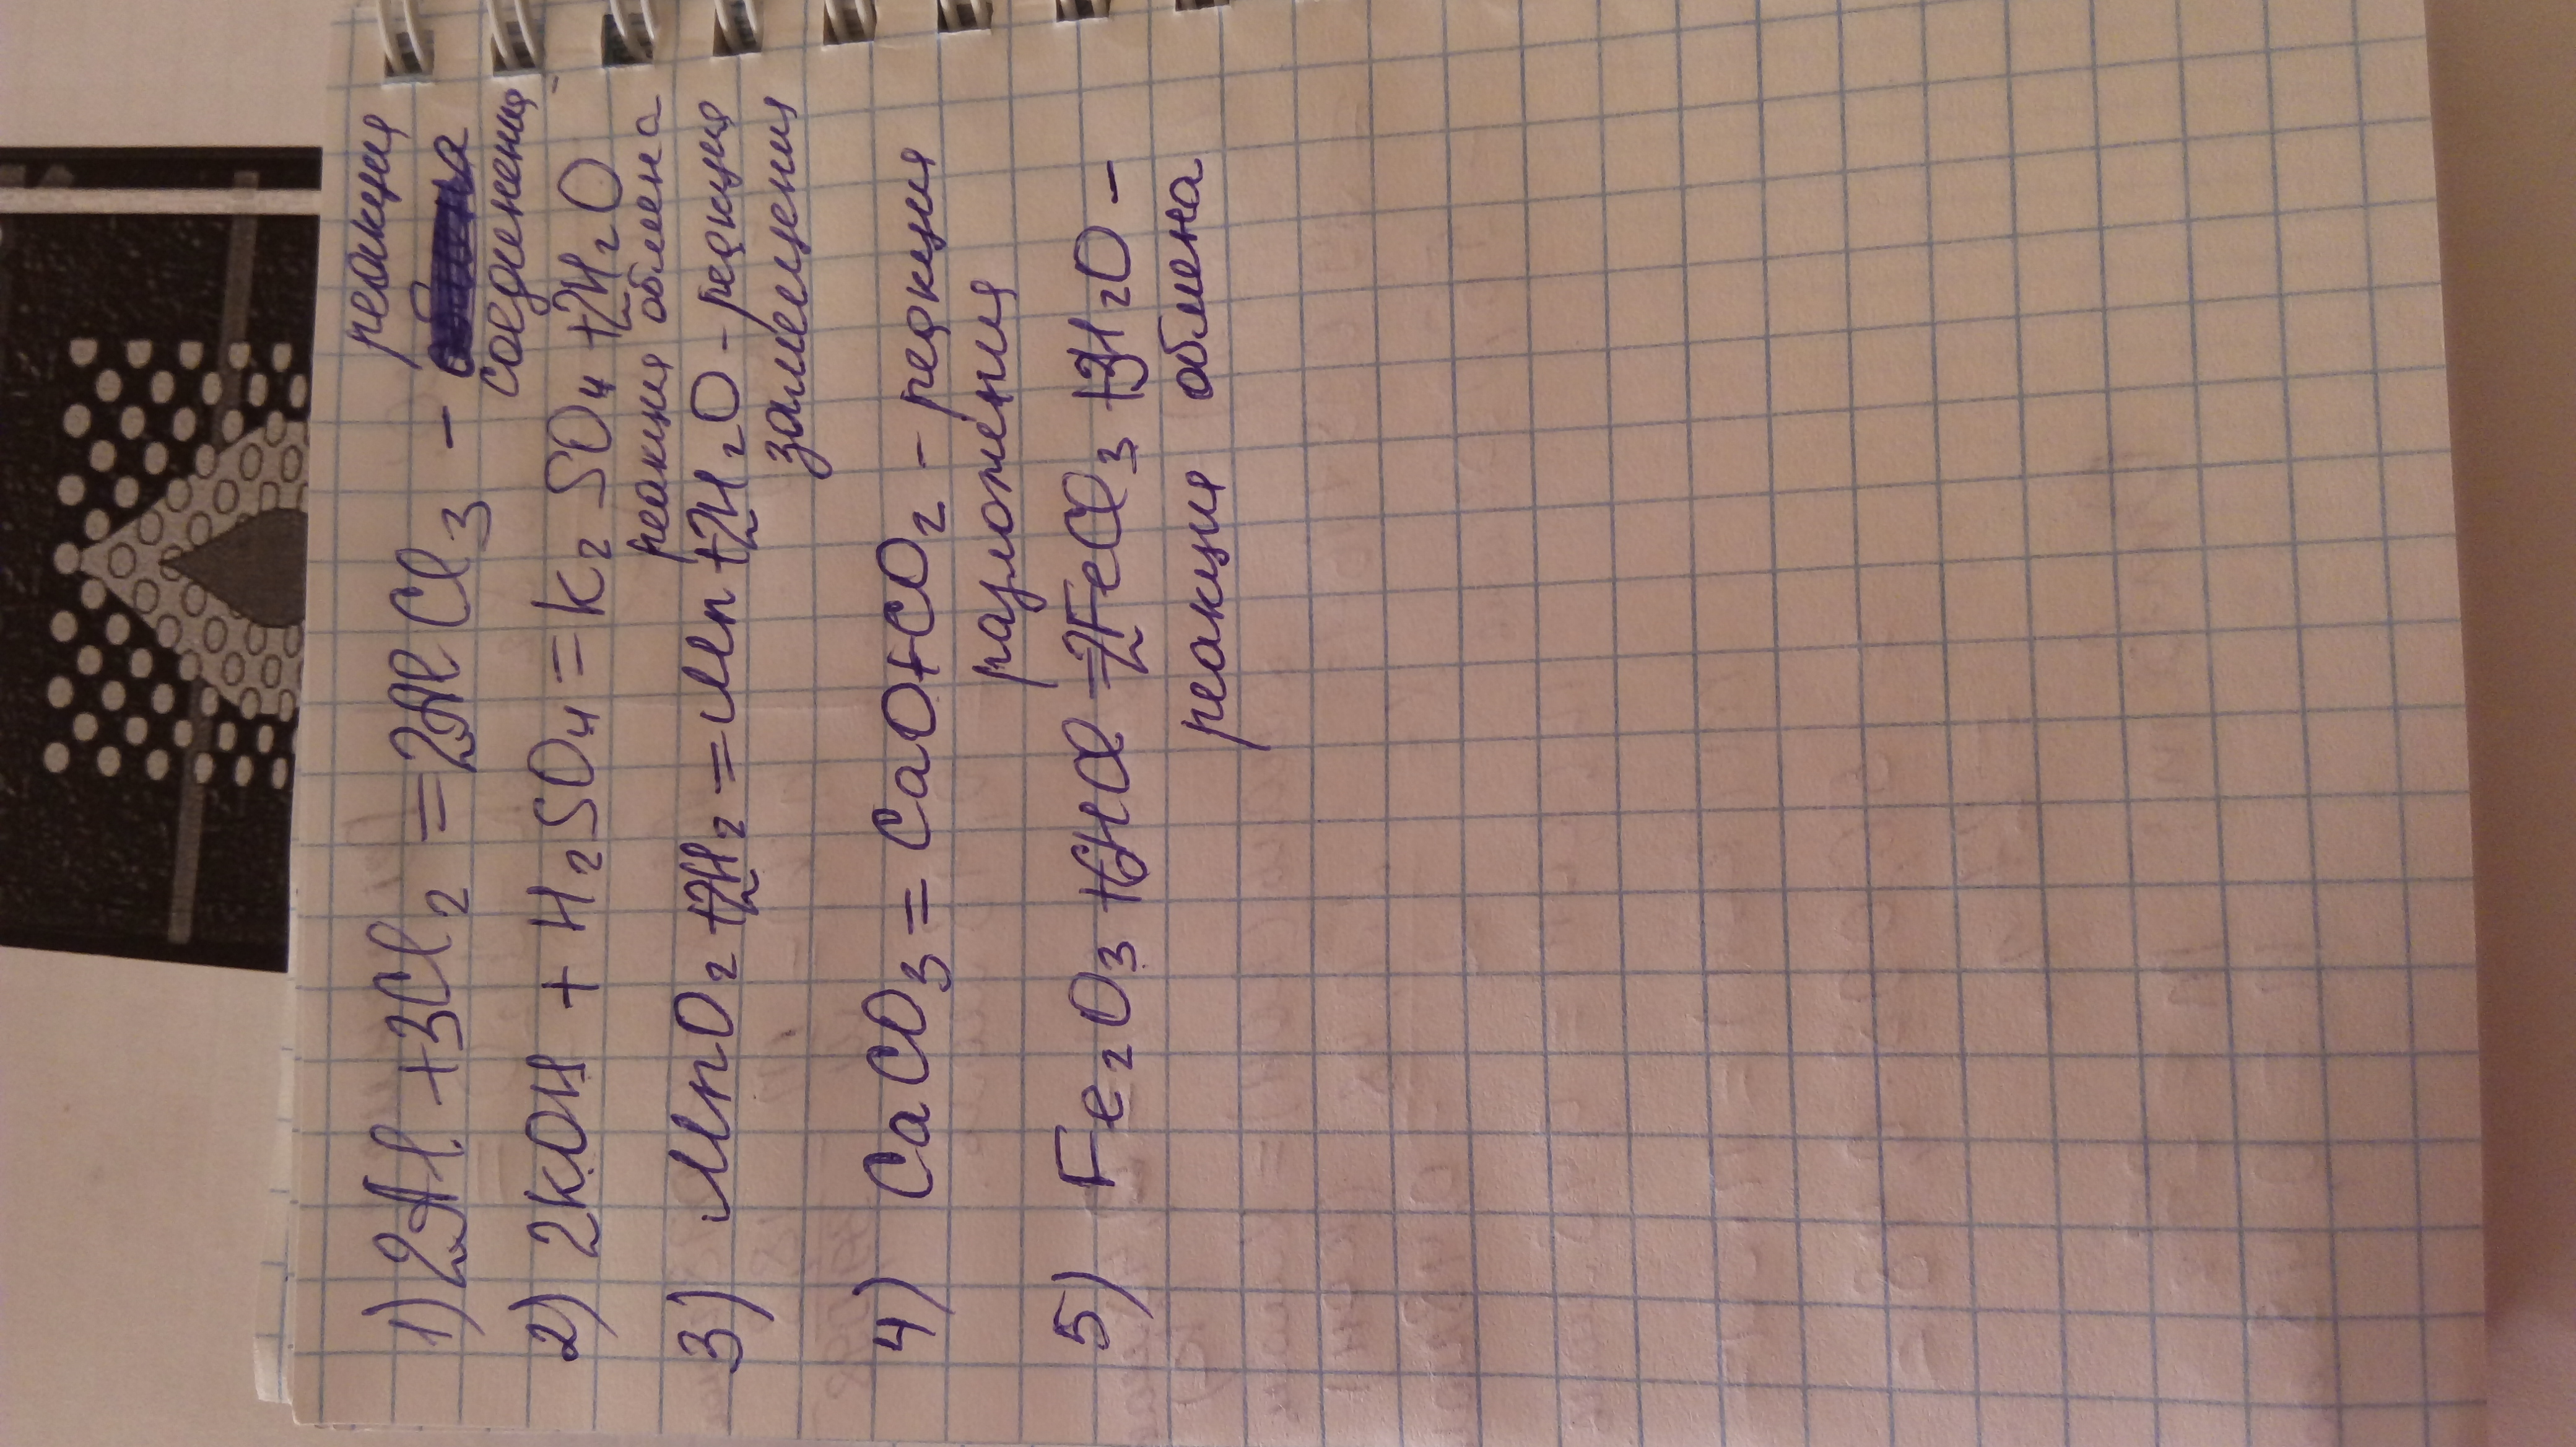 1) 2Al + 3Cl₂ = 2AlCl₃ - реакция
соединения
2) 2KOH + H₂SO₄ = K₂SO₄ + 2H₂O
реакция обмена
3) MnO₂ + 2H₂ = Mn + 2H₂O - реакция
замещения
4) CaCO₃ = CaO + CO₂ - реакция
разложения
5) Fe₂O₃ + 6HCl = 2FeCl₃ + 3H₂O -
реакция обмена